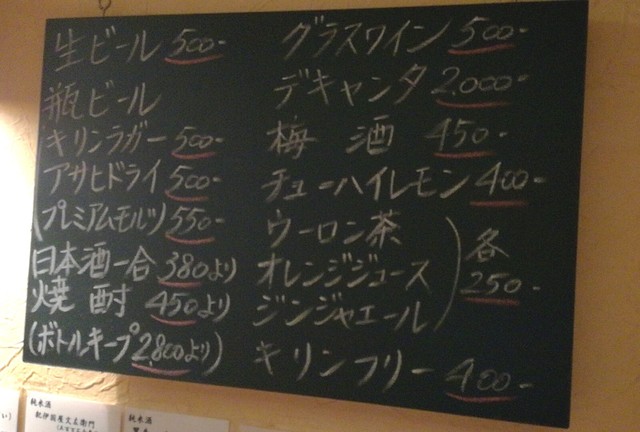 生ビール 500-
瓶ビール
キリンラガー 500-
アサヒドライ 500-
(プレミアムモルツ) 550-
日本酒一合 380より
焼酎 450より
(ボトルキープ2,800より)
グラスワイン 500-
デキャンタ 2,000-
梅酒 450-
チューハイレモン 400-
ウーロン茶
オレンジジュース
ジンジャエール
各
250-
キリンフリー 400-
純米酒
紀伊国屋文左衛門
純米酒